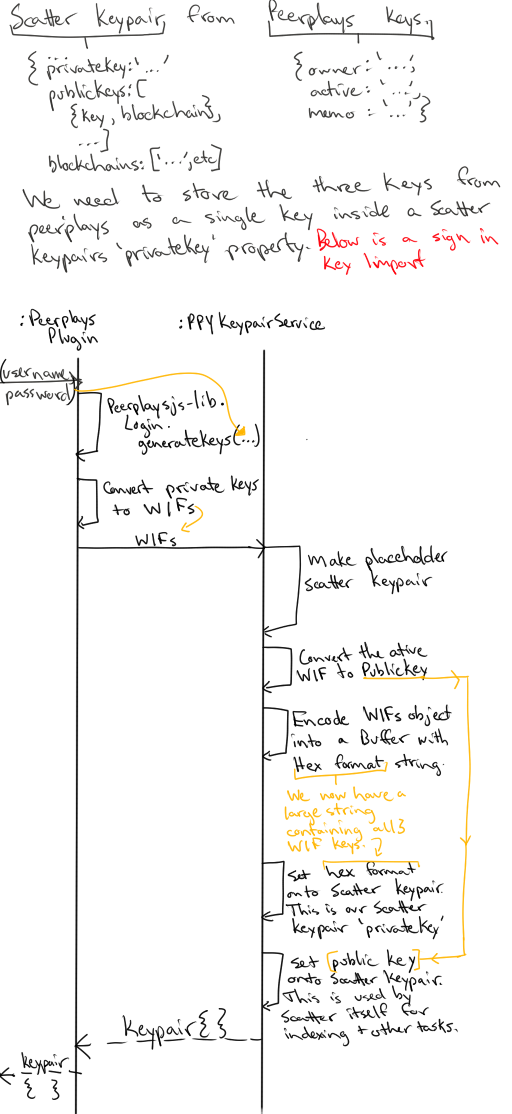 Scatter Keypair from Peerplays Keys.
{ privateKey: '...'
publicKeys: [
{key, blockchain},
...]
blockchains: ['...', etc]
{owner: '...',
active: '...',
memo: '...'}
We need to store the three keys from
peerplays as a single key inside a Scatter
keypairs 'privateKey' property. Below is a sign in
key import
:Peerplays
Plugin
:PPYKeypairService
(username,
password)
Peerplaysjs-lib.
Login.
generateKeys(...)
Convert private keys
to WIFs
WIFs
Make placeholder
Scatter Keypair
Convert the ative
WIF to PublicKey
Encode WIFs object
into a Buffer with
Hex format string.
We now have a
large string
containing all 3
WIF keys.
Set hex format
onto Scatter Keypair.
This is our Scatter
keypair 'privateKey'
Set public key
onto Scatter Keypair.
This is used by
Scatter itself for
indexing + other tasks.
Keypair{}
keypair
{ }